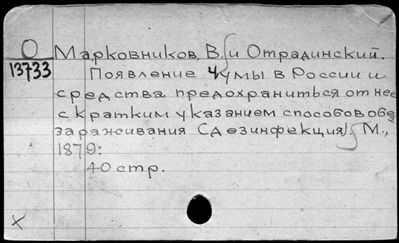 О Марковников, В. и Отрадинский.
13733 Появление чумы в России и
средства предохраниться от нее
с кратким указанием способов обез
зараживания (дезинфекция). М.,
1879:
40 стр.